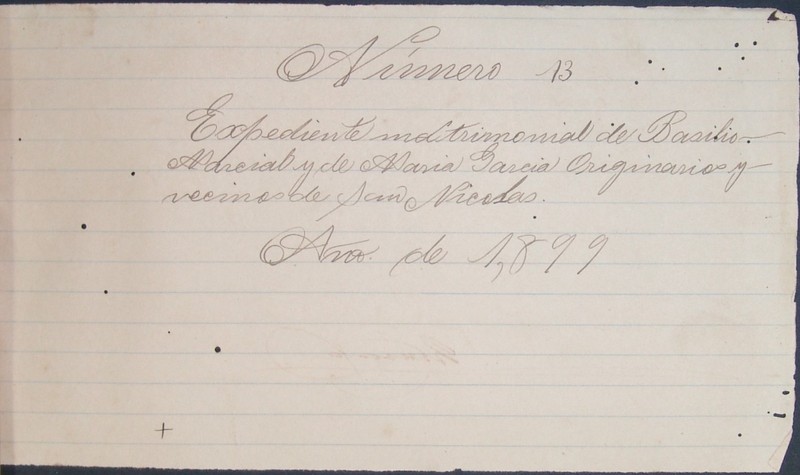 Número 13
Expediente matrimonial de Basilio
Marcial y de Maria Garcia Originarios y
vecinos de San Nicolas.
Año. de 1,899